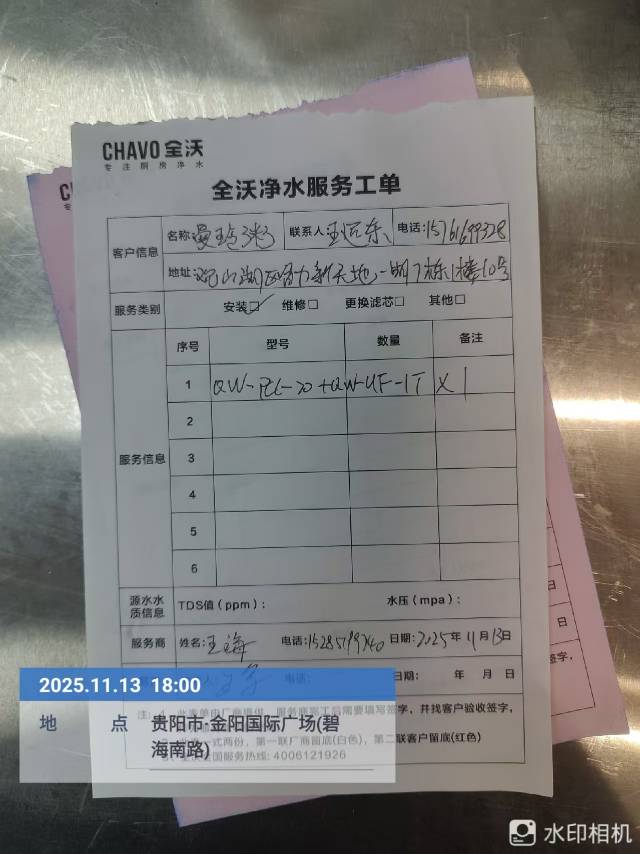 CHAVO 全沃
专注厨房净水
全沃净水服务工单
客户信息
名称:曼玲粥 联系人 王远东 电话:15761699328
地址:观山湖区智力新天地一期7栋1楼10号
服务类别 安装☑ 维修□ 更换滤芯□ 其他□
服务信息
序号 型号 数量 备注
1 QW-PCC-20+QW-UF-1T X1
2
3
4
5
6
源水水质信息 TDS值(ppm): 水压(mpa):
服务商 姓名:王海 电话: 日期:2025年11月13日
电话: 日期: 年 月 日
服务商完工后需要填写签字,并找客户验收签字,
一式两份,第一联厂商留底(白色),第二联客户留底(红色)
全国服务热线:4006121926
2025.11.13 18:00
地 点 贵阳市·金阳国际广场(碧
海南路)
水印相机